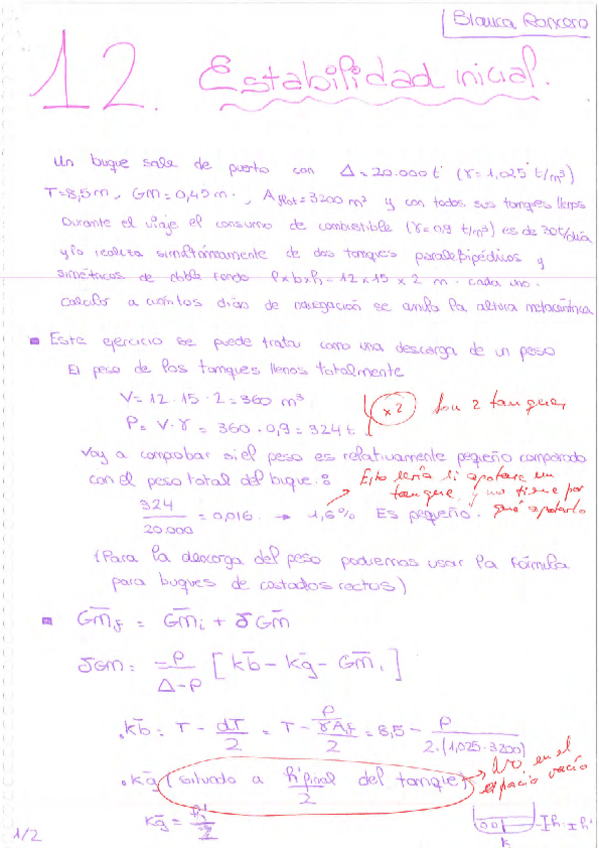 Blanca Romero
12. Estabilidad inicial.
Un buque sale de puerto con Δ = 20.000 t (γ = 1,025 t/m³)
T = 8,5 m, GM = 0,45 m, A flot = 3200 m² y con todos sus tanques llenos
Durante el viaje el consumo de combustible (γ = 0,9 t/m³) es de 30t/día
y lo realiza simultáneamente de dos tanques paralelepipédicos y
simétricos de doble fondo l x b x h = 12 x 15 x 2 m. cada uno.
Calcular a cuántos días de navegación se anula la altura metacéntrica
Este ejercicio se puede tratar como una descarga de un peso
El peso de los tanques llenos totalmente
V = 12 · 15 · 2 = 360 m³
P = V · γ = 360 · 0,9 = 324 t
x 2 Son 2 tanques
Voy a comprobar si el peso es relativamente pequeño comparado
con el peso total del buque:
Esto sería si agotare un tanque, y no tiene por qué agotarlo
324/20.000 = 0,016 → 1,6% Es pequeño.
(Para la descarga del peso podremos usar la fórmula
para buques de costados rectos)
GM̄f = GM̄i + δGM̄
δGM = -P/(Δ-P) [KB̄ - Kḡ - GM̄i]
· Kb̄ = T - dT/2 = T - (P/γAf)/2 = 8,5 - P/(2·(1,025·3200))
· Kḡ (situado a h' final/2 del tanque) → No en el espacio vacío
Kḡ = h'/2
K
1/2